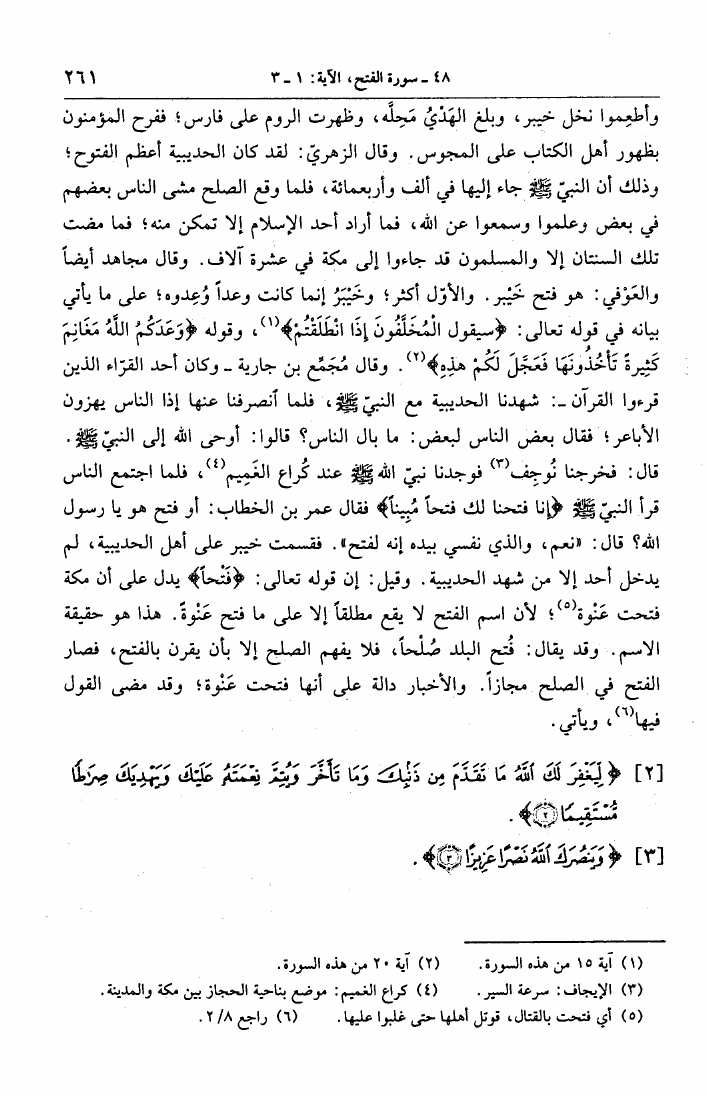 ٤٨ ـ سورة الفتح، الآية: ١ ـ ٣
٢٦١
وأطعِموا نخل خيبر، وبلغ الهَدْيُ مَحِلَّه، وظهرت الروم على فارس؛ ففرح المؤمنون
بظهور أهل الكتاب على المجوس. وقال الزهريّ: لقد كان الحديبية أعظم الفتوح؛
وذلك أن النبيّ ﷺ جاء إليها في ألف وأربعمائة، فلما وقع الصلح مشى الناس بعضهم
في بعض وعلموا وسمعوا عن الله، فما أراد أحد الإسلام إلا تمكن منه؛ فما مضت
تلك السنتان إلا والمسلمون قد جاءوا إلى مكة في عشرة آلاف. وقال مجاهد أيضاً
والعَوْفي: هو فتح خَيْبر. والأوّل أكثر؛ وخَيْبَرُ إنما كانت وعداً وُعِدوه؛ على ما يأتي
بيانه في قوله تعالى: ﴿سيقول الْمُخَلَّفُونَ إِذَا انْطَلَقْتُمْ﴾(١)، وقوله ﴿وَعَدَكُمُ اللَّهُ مَغَانِمَ
كَثِيرةً تَأْخُذُونَهَا فَعَجَّلَ لَكُمْ هٰذِهِ﴾(٢). وقال مُجَمِّع بن جارية ـ وكان أحد القرّاء الذين
قرءوا القرآن ـ: شهدنا الحديبية مع النبيّ ﷺ، فلما ٱنصرفنا عنها إذا الناس يهزون
الأباعر؛ فقال بعض الناس لبعض: ما بال الناس؟ قالوا: أوحى الله إلى النبيّ ﷺ.
قال: فخرجنا نُوجِف(٣) فوجدنا نبيّ الله ﷺ عند كُراع الغَمِيم(٤)، فلما اجتمع الناس
قرأ النبيّ ﷺ ﴿إِنا فتحنا لك فتحاً مُبِيناً﴾ فقال عمر بن الخطاب: أو فتح هو يا رسول
الله؟ قال: «نعم، والذي نفسي بيده إنه لفتح». فقسمت خيبر على أهل الحديبية، لم
يدخل أحد إلا من شهد الحديبية. وقيل: إن قوله تعالى: ﴿فَتْحاً﴾ يدل على أن مكة
فتحت عَنْوة(٥)؛ لأن اسم الفتح لا يقع مطلقاً إلا على ما فتح عَنْوةً. هذا هو حقيقة
الاسم. وقد يقال: فُتح البلد صُلْحاً، فلا يفهم الصلح إلا بأن يقرن بالفتح، فصار
الفتح في الصلح مجازاً. والأخبار دالة على أنها فتحت عَنْوة؛ وقد مضى القول
فيها(٦)، ويأتي.
[٢] ﴿لِّيَغْفِرَ لَكَ ٱللَّهُ مَا تَقَدَّمَ مِن ذَنۢبِكَ وَمَا تَأَخَّرَ وَيُتِمَّ نِعْمَتَهُۥ عَلَيْكَ وَيَهْدِيَكَ صِرَٰطًا
مُّسْتَقِيمًا ۝٢﴾.
[٣] ﴿وَيَنصُرَكَ ٱللَّهُ نَصْرًا عَزِيزًا ۝٣﴾.
(١) آية ١٥ من هذه السورة. (٢) آية ٢٠ من هذه السورة.
(٣) الإيجاف: سرعة السير. (٤) كراع الغميم: موضع بناحية الحجاز بين مكة والمدينة.
(٥) أي فتحت بالقتال، قوتل أهلها حتى غلبوا عليها. (٦) راجع ٢/٨.